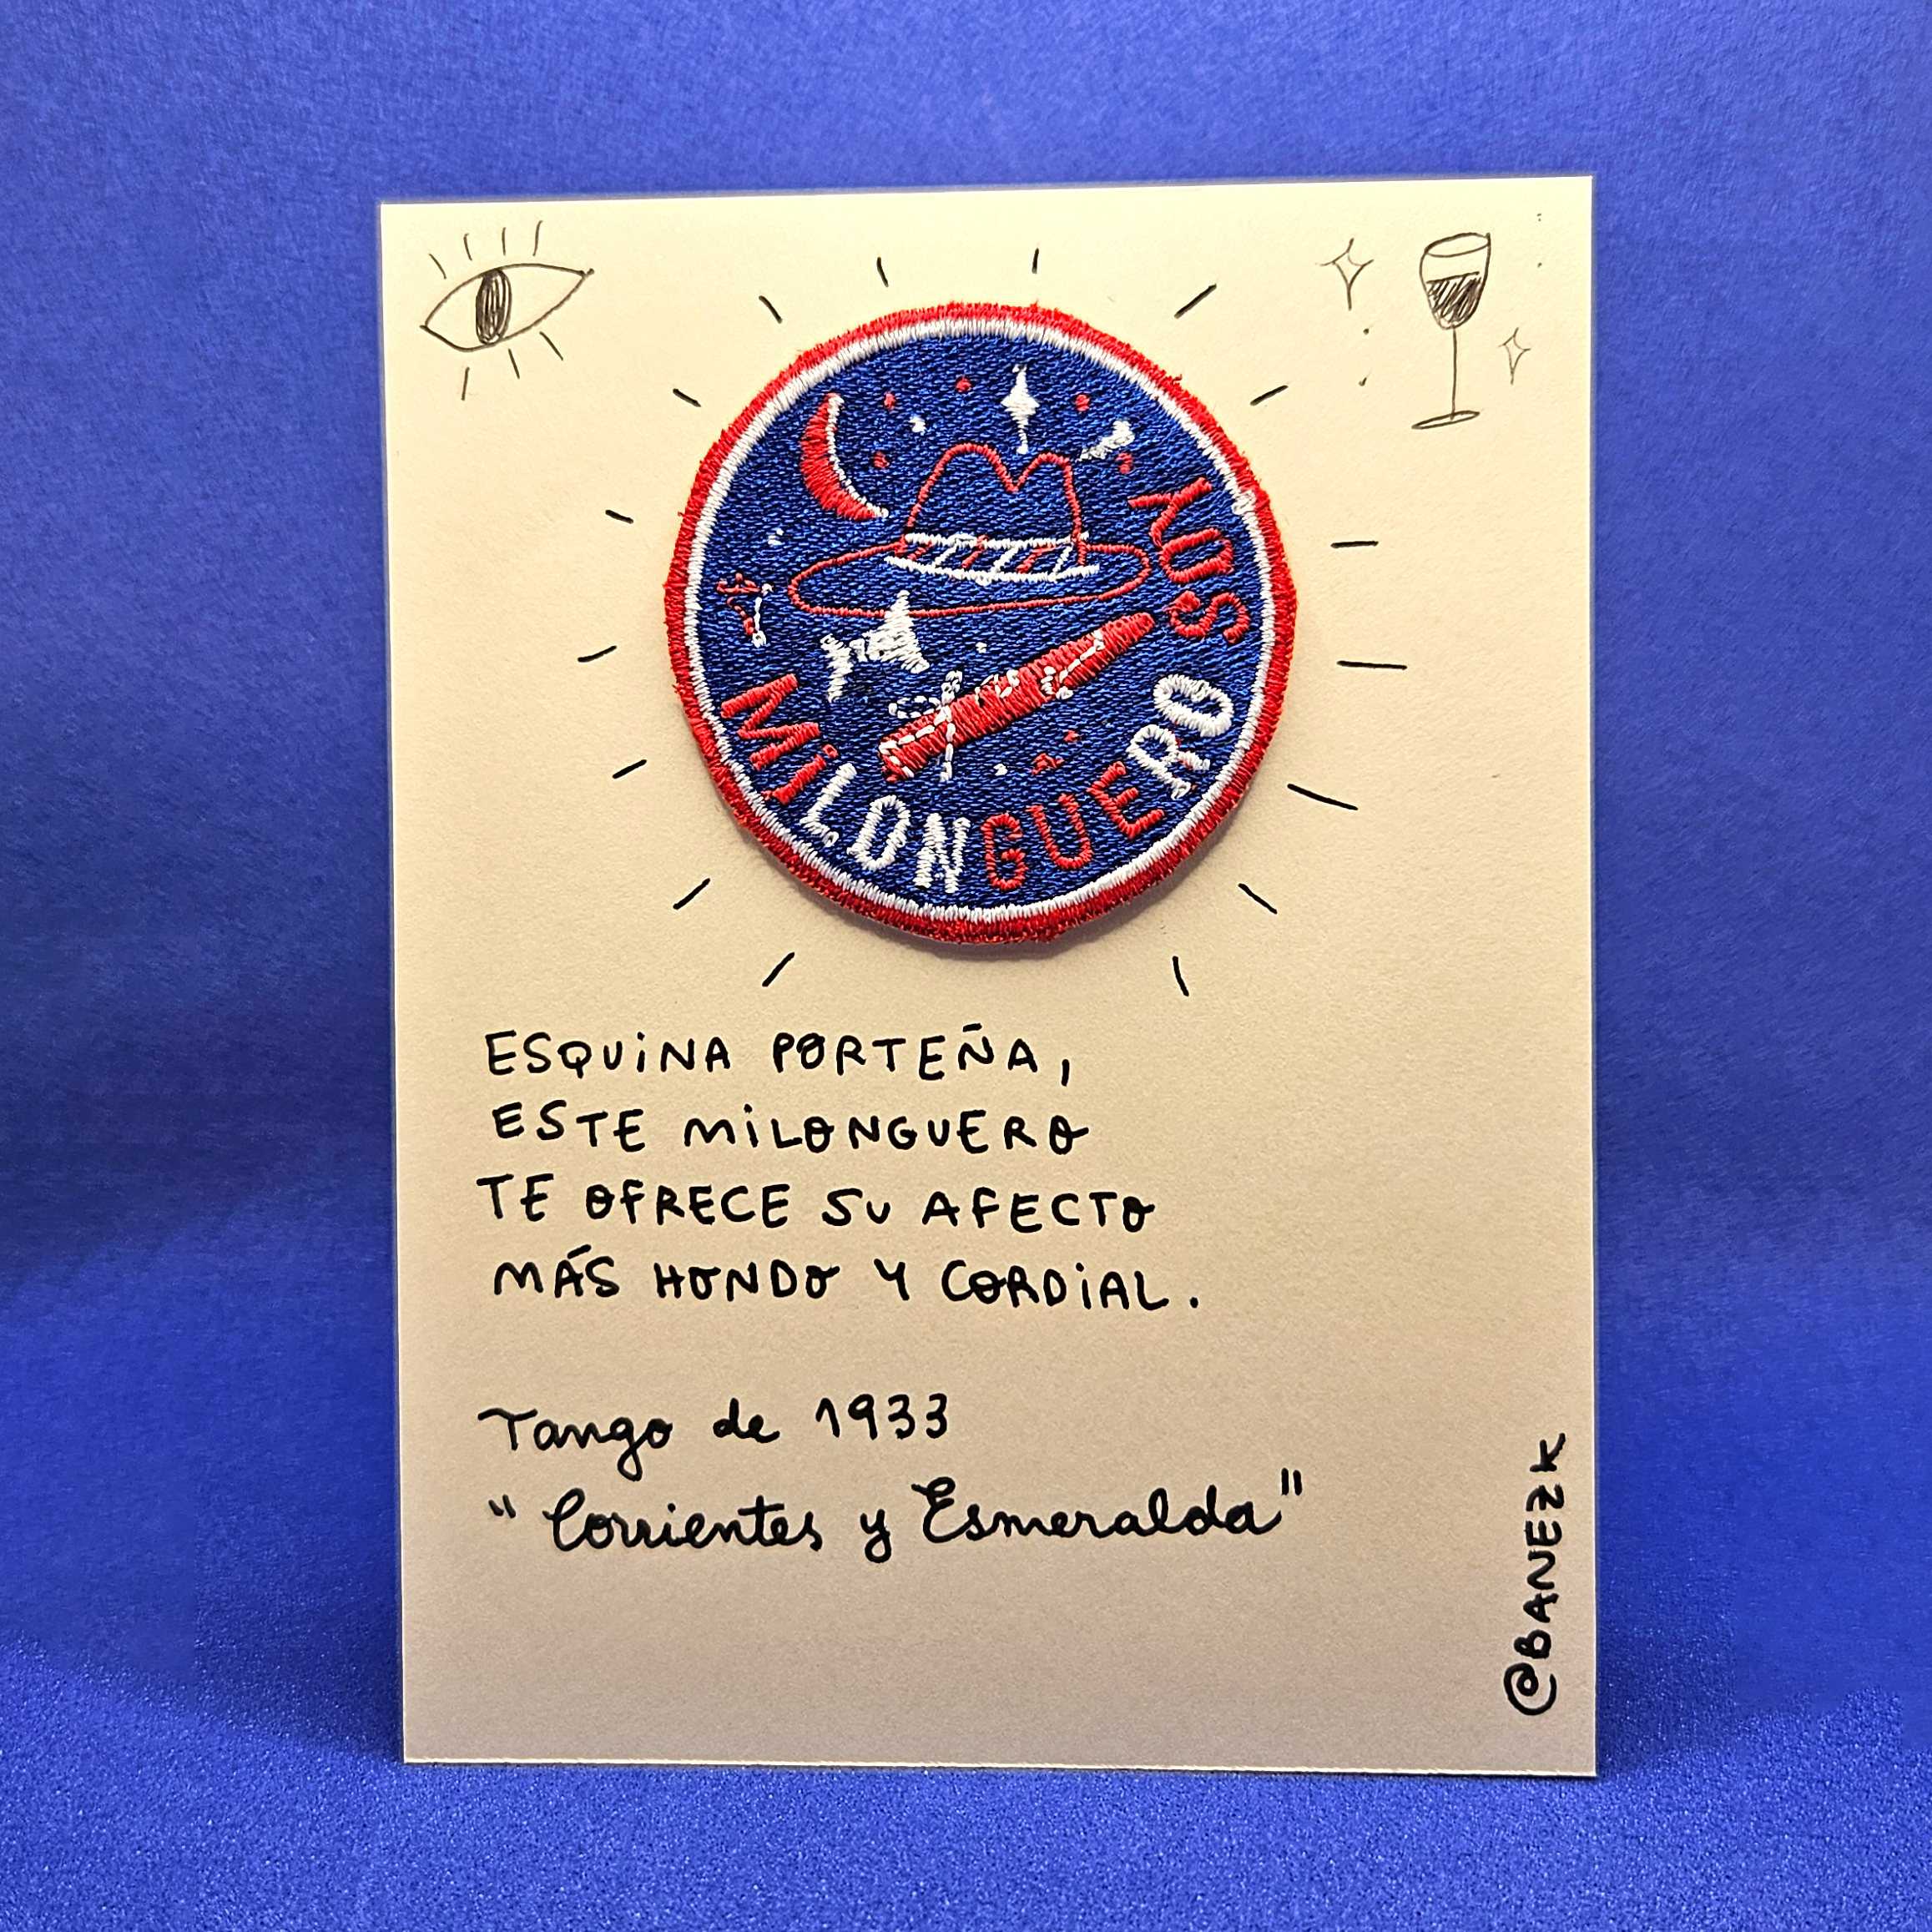 SOY
MiLONGUERO
ESQUiNA PORTEÑA,
ESTE MiLONGUERO
TE OFRECE SU AFECTO
MÁS HONDO Y CORDiAL.
Tango de 1933
"Corrientes y Esmeralda"
@BANEZK